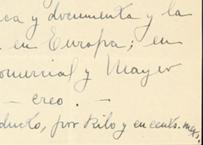 ca y documenta y la
en Europa; en
omercial y Mayer
— creo. —
ducto, por kilo y en cents. mex.